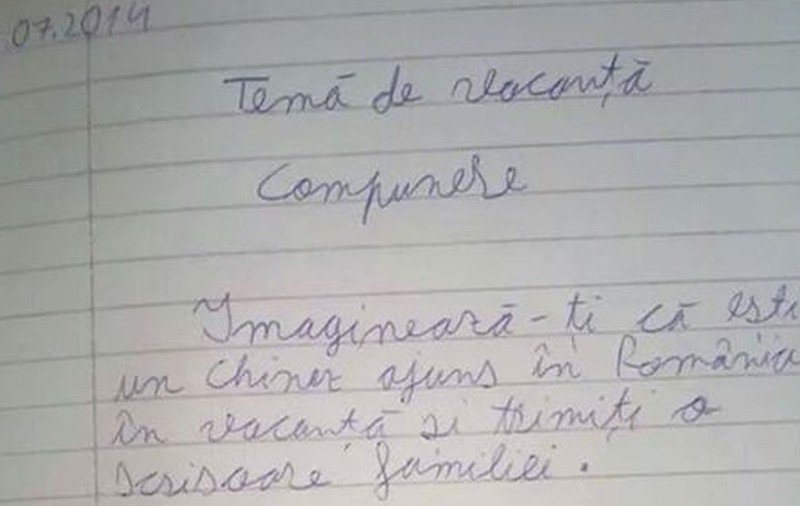 07.2014
Temă de vacanță
Compunere
Imaginează-ti că esti
un chinez ajuns în România
în vacantă si trimiți o
scrisoare familiei.